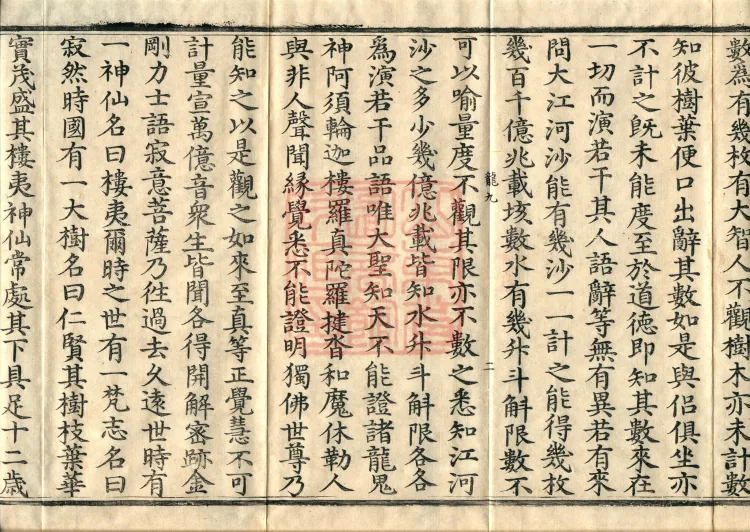 數爲有幾枚有大智人不觀樹木亦未計數
知彼樹葉便口出辭其數如是與侣俱坐亦
不計之旣未能度至於道德即知其數來在
一切而演若干其人語辭等無有異若有來
問大江河沙能有幾沙一一計之能得幾枚
幾百千億兆載垓數水有幾升斗斛限數不
龍九 二
可以喻量度不觀其限亦不數之悉知江河
沙之多少幾億兆載皆知水升斗斛限各各
爲演若干品語唯大聖知天不能證諸龍鬼
神阿須輪迦樓羅真陀羅揵沓和魔休勒人
與非人聲聞緣覺悉不能證明獨佛世尊乃
能知之以是觀之如來至真等正覺慧不可
計量宣萬億音衆生皆聞各得開解密跡金
剛力士語寂意菩薩乃往過去久遠世時有
一神仙名曰樓夷爾時之世有一梵志名曰
寂然時國有一大樹名曰仁賢其樹枝葉華
實茂盛其樓夷神仙常處其下具足十二歲